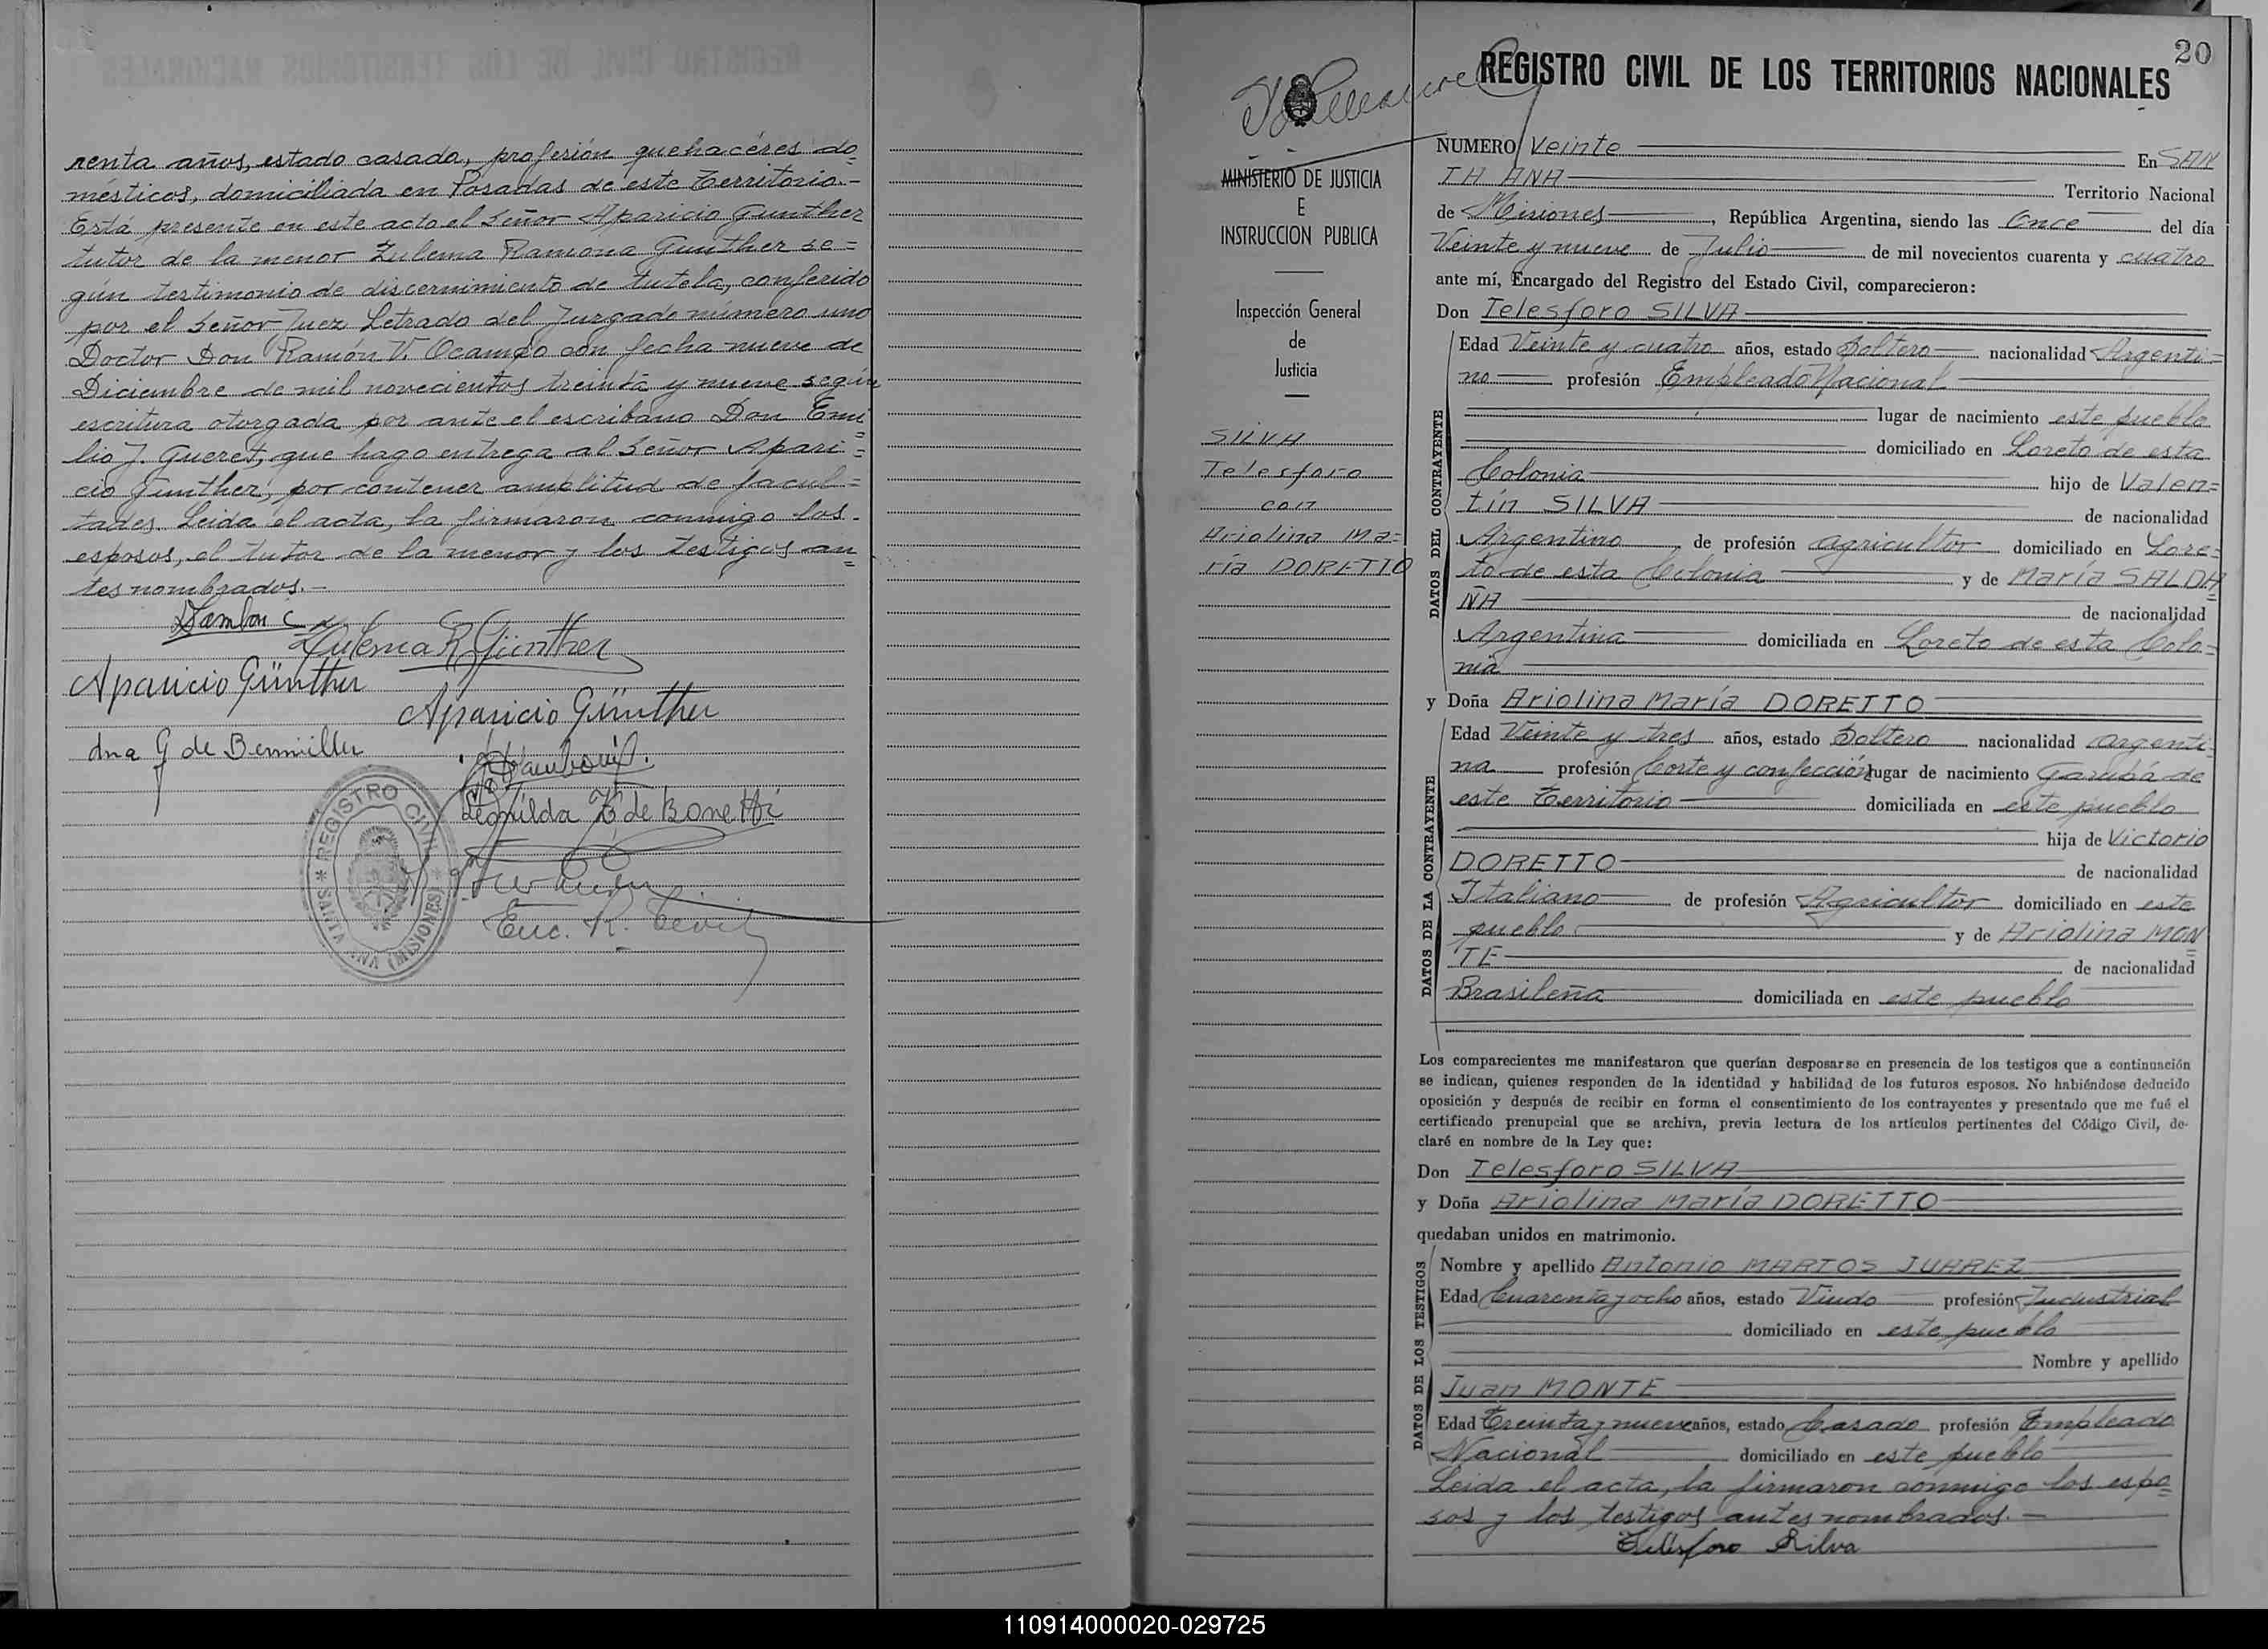 renta años, estado casada, profesión quehacéres do=
mésticos, domiciliada en Posadas de este Territorio.-
Está presente en este acto el Señor Aparicio Gunther
tutor de la menor Zulema Ramona Gunther se=
gún testimonio de discernimiento de tutela, conferido
por el Señor Juez Letrado del Juzgado número uno
Doctor Don Ramón V. Ocampo con fecha nueve de
Diciembre de mil novecientos treinta y nueve según
escritura otorgada por ante el escribano Don Emi=
lio J. Gueret, que hago entrega al Señor Apari=
cio Gunther, por contener amplitud de facul=
tades. Leida el acta, la firmaron conmigo los
esposos, el tutor de la menor y los testigos an=
tes nombrados.-
Zulema R. Günther
Aparicio Günther
Aparicio Günther
G de Bermiller
de Bonetti
Enc. R. Civil
REGISTRO CIVIL
SANTA ANA (MISIONES)
20
REGISTRO CIVIL DE LOS TERRITORIOS NACIONALES
MINISTERIO DE JUSTICIA
E
INSTRUCCION PUBLICA
Inspección General
de
Justicia
SILVA
Telesforo
con
Ariolina Ma=
ría DORETTO
NUMERO Veinte En SAN
TA ANA Territorio Nacional
de Misiones, República Argentina, siendo las Once del día
Veinte y nueve de Julio de mil novecientos cuarenta y cuatro
ante mí, Encargado del Registro del Estado Civil, comparecieron:
Don Telesforo SILVA
DATOS DEL CONTRAYENTE
Edad Veinte y cuatro años, estado Soltero nacionalidad Argenti=
no profesión Empleado Nacional
lugar de nacimiento este pueblo
domiciliado en Loreto de esta
Colonia hijo de Valen=
tín SILVA de nacionalidad
Argentino de profesión agricultor domiciliado en Lore=
to de esta Colonia y de María SALDA=
ÑA de nacionalidad
Argentina domiciliada en Loreto de esta Colo=
nia
y Doña Ariolina María DORETTO
DATOS DE LA CONTRAYENTE
Edad Veinte y tres años, estado Soltero nacionalidad argenti=
na profesión Corte y confección lugar de nacimiento Garupá de
este Territorio domiciliada en este pueblo
hija de Victorio
DORETTO de nacionalidad
Italiano de profesión Agricultor domiciliado en este
pueblo y de Ariolina MON=
TE de nacionalidad
Brasileña domiciliada en este pueblo
Los comparecientes me manifestaron que querían desposarse en presencia de los testigos que a continuación
se indican, quienes responden de la identidad y habilidad de los futuros esposos. No habiéndose deducido
oposición y después de recibir en forma el consentimiento de los contrayentes y presentado que me fué el
certificado prenupcial que se archiva, previa lectura de los artículos pertinentes del Código Civil, de-
claré en nombre de la Ley que:
Don Telesforo SILVA
y Doña Ariolina María DORETTO
quedaban unidos en matrimonio.
DATOS DE LOS TESTIGOS
Nombre y apellido Antonio MARTOS JUAREZ
Edad Cuarenta y ocho años, estado Viudo profesión Industrial
domiciliado en este pueblo
Nombre y apellido
Juan MONTE
Edad Treinta y nueve años, estado Casado profesión Empleado
Nacional domiciliado en este pueblo
Leida el acta, la firmaron conmigo los espo=
sos y los testigos antes nombrados.-
Telesforo Silva
110914000020-029725